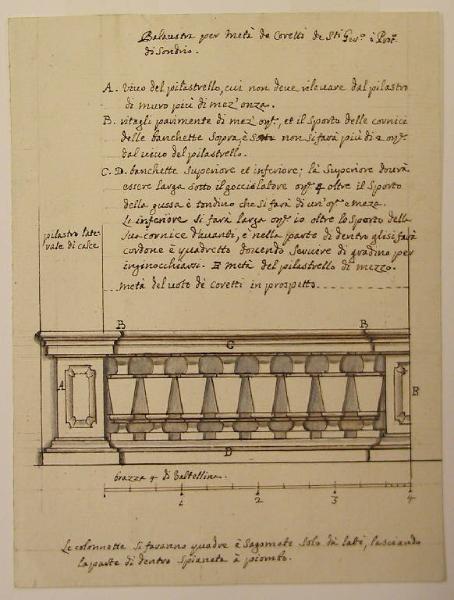 Balaustra per metà de Coretti de Sti Gerv.o i Prot.o
di Sondrio.
A. Vivo del pilastrello, cui non deve rilevare dal pilastro
di muro più di mez' onza.
B. ritagli pavimente di mez' onz.a, et il sporto delle cornici
delle banchette sopra, è non si farà più di 2 onz.e
dal vivo del pilastrello.
C. D. banchette superiore et inferiore; la superiore dovrà
essere larga sotto il gocciolatore onz.e 4 oltre il sporto
della gussa è tondino che si farà di un' onz.a e meza.
Le inferiore si farà larga onz.e 10 oltre lo sporto della
sua cornice d'avanti, è nella parte di dentro gli si farà
cordone è quadretto dovendo servire di gradino per
inginocchiarsi. E metà del pilastrello di mezzo.
metà del vote de Coretti in prospetto.
pilastro late-
rale di calce
B
B
C
A
E
D
brazza 4 di Valtellina.
1
2
3
4
Le colonnette si faranno quadre è sagomate solo dà lati, lasciando
la parte di dentro spianata à piombo.